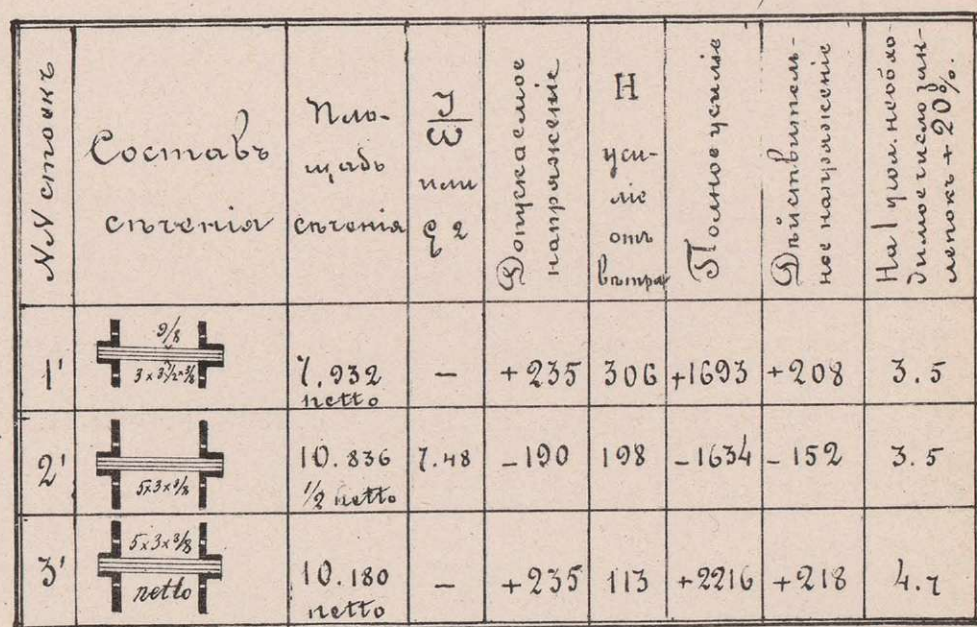 №№ стоекъ
Составъ
сѣченія
Пло-
щадь
сѣченія
J/ω
или
ρ2
Допускаемое
напряженіе
H
уси-
ліе
отъ
вѣтра
Полное усиліе
Дѣйствитель-
ное напряженіе
На 1 укол. необхо-
димое число зак-
лепокъ + 20%.
1'
9/8
3 x 3 1/2 x 3/8
7.932
netto
—
+235
306
+1693
+208
3.5
2'
5x3x3/8
10.836
1/2 netto
7.48
-190
198
-1634
-152
3.5
3'
5x3x3/8
netto
10.180
netto
—
+235
113
+2216
+218
4.7